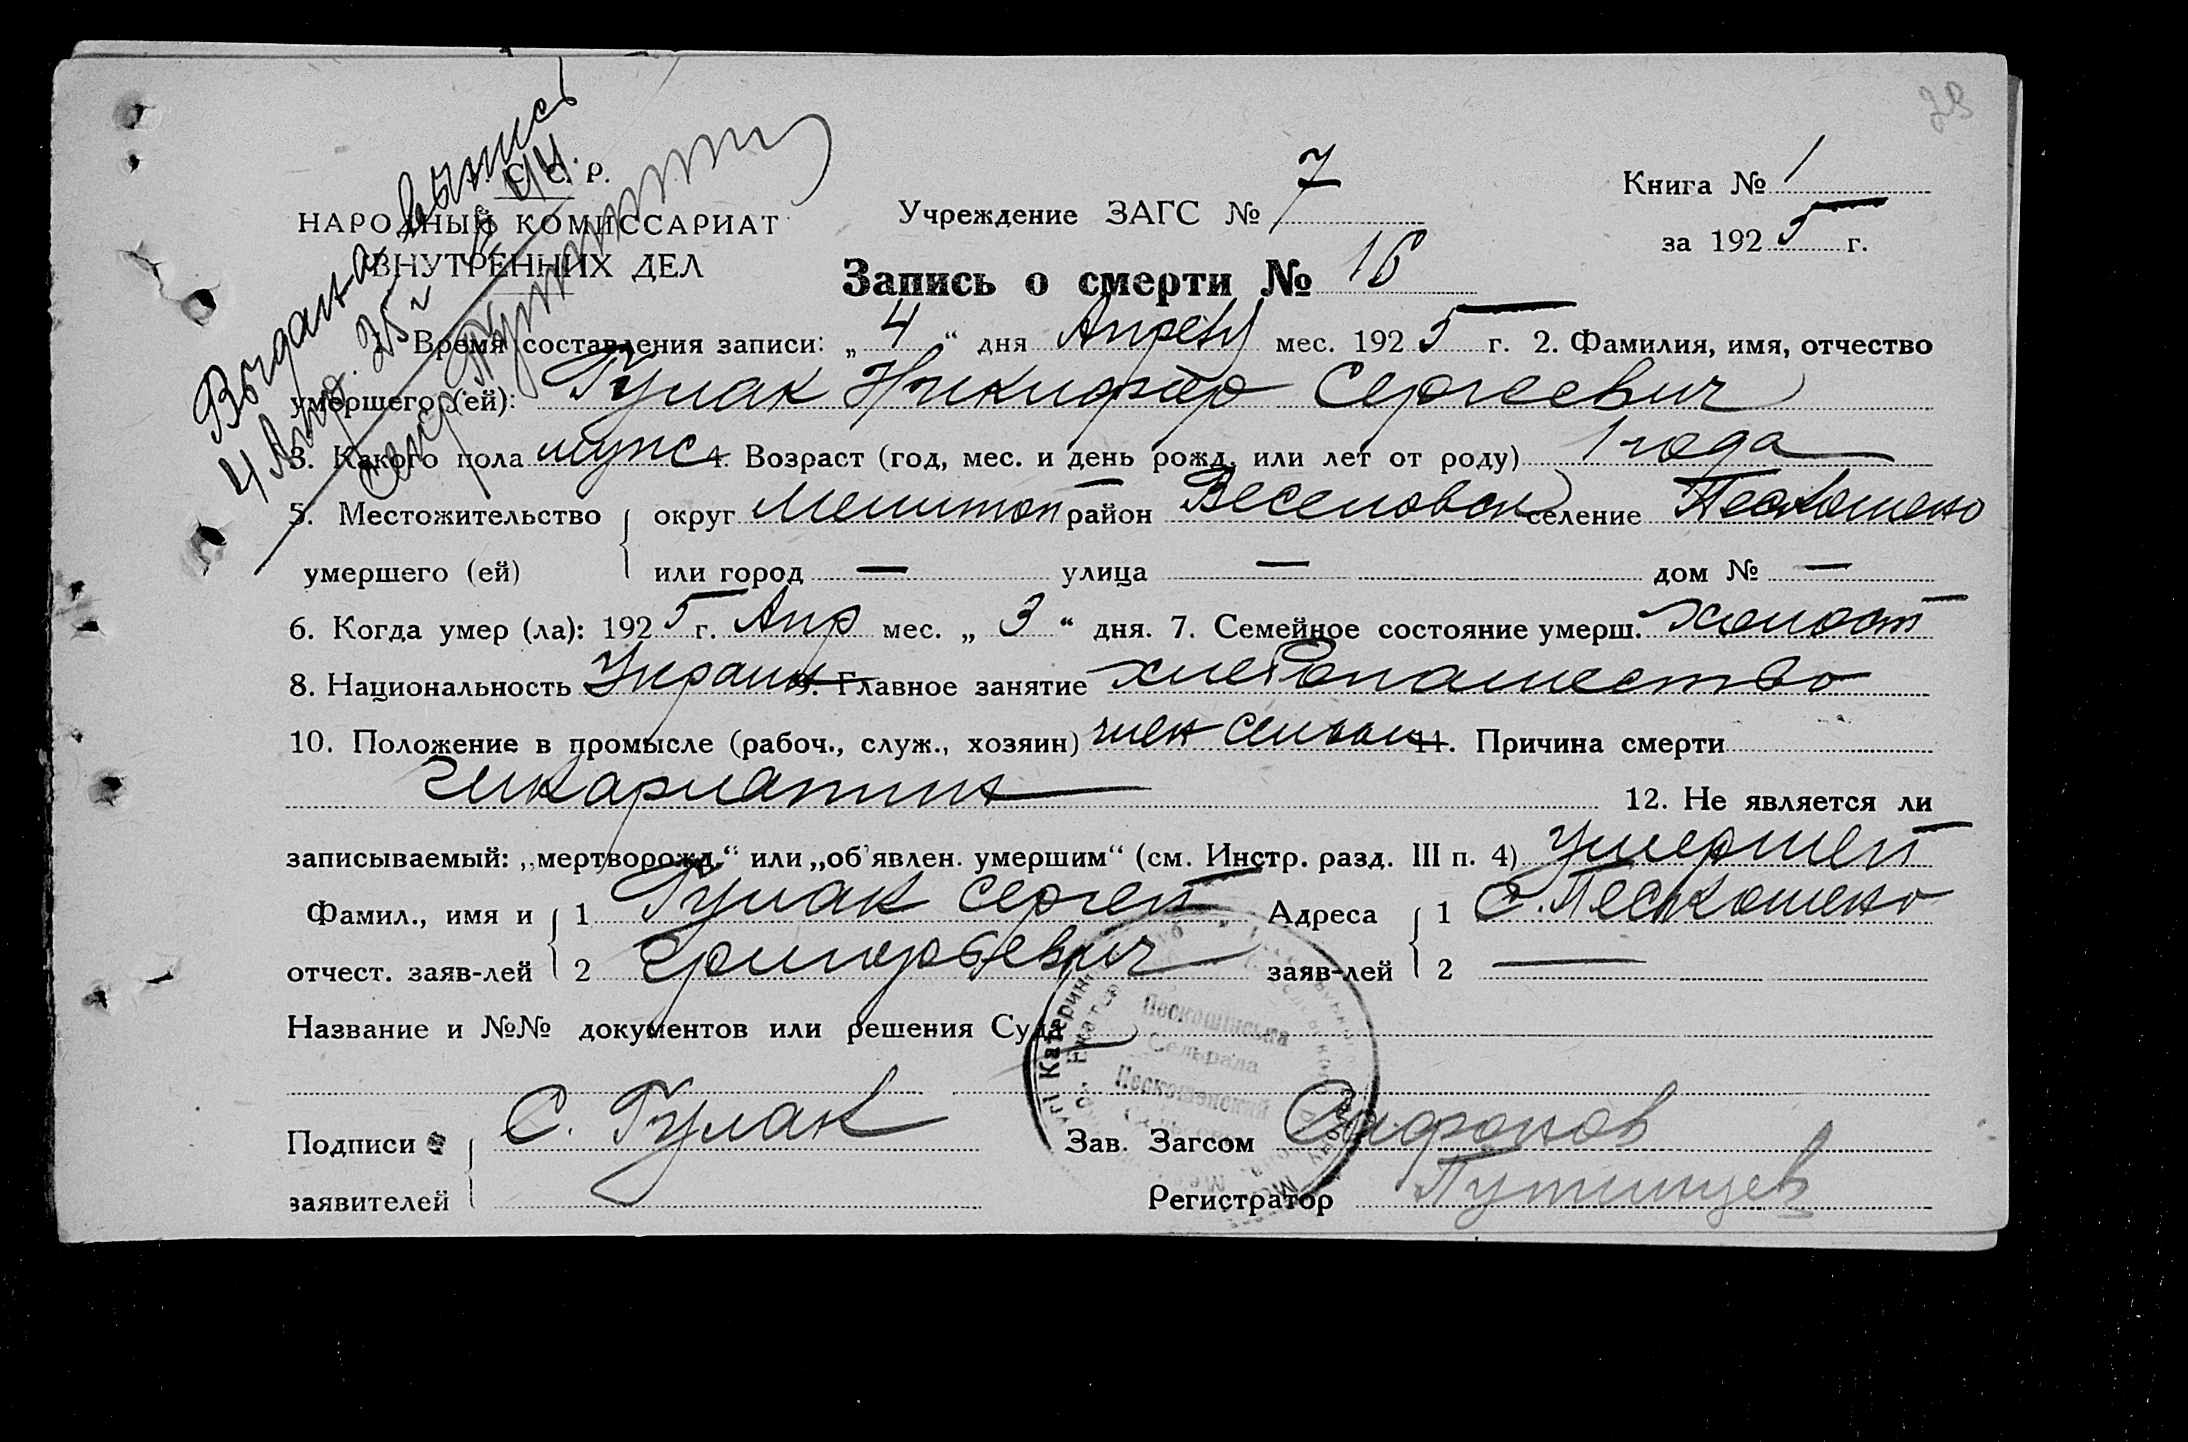 29
Выдана выпись
4 Апр. 25 г № 44
секр. Путинцев
С. С. Р.
НАРОДНЫЙ КОМИССАРИАТ
ВНУТРЕННИХ ДЕЛ
Учреждение ЗАГС № 7
Книга № 1
за 1925 г.
Запись о смерти № 16
1. Время составления записи: „4“ дня Апреля мес. 1925 г. 2. Фамилия, имя, отчество
умершего (ей): Гулак Никифор Сергеевич
3. Какого пола муж 4. Возраст (год, мес. и день рожд. или лет от роду) 1 года
5. Местожительство округ Мелитоп район Веселовск селение Пескошено
умершего (ей) или город — улица — дом № —
6. Когда умер (ла): 1925 г. Апр мес. „3“ дня. 7. Семейное состояние умерш. холост
8. Национальность Украин 9. Главное занятие хлебопашество
10. Положение в промысле (рабоч., служ., хозяин) член семьи 11. Причина смерти
скарлатина 12. Не является ли
записываемый: „мертворожд.“ или „об'явлен. умершим“ (см. Инстр. разд. III п. 4) умерший
Фамил., имя и 1 Гулак Сергей Адреса 1 С. Пескошено
отчест. заяв-лей 2 Григорьевич заяв-лей 2 —
Название и №№ документов или решения Суда
Пескошинська
Сельрада
Пескошенский
Подписи С. Гулак Зав. Загсом Сафонов
заявителей Регистратор Путинцев